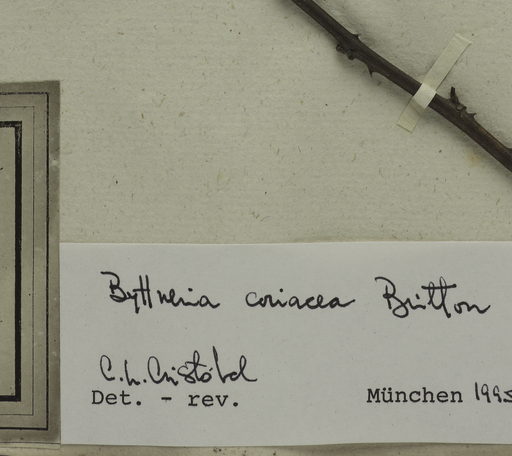 Byttneria coriacea Britton
C.L. Cristóbal
Det. - rev. München 1995